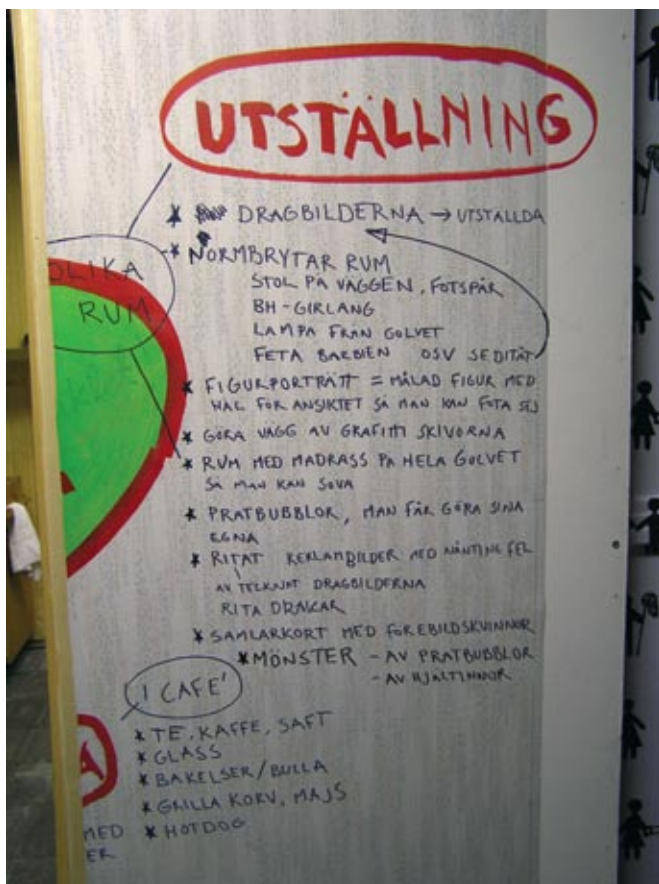 UTSTÄLLNING
* DRAGBILDERNA → UTSTÄLLDA
* NORMBRYTAR RUM
STOL PÅ VÄGGEN, FOTSPÅR
BH-GIRLANG
LAMPA FRÅN GOLVET
FETA BARBIEN OSV
OLIKA
RUM
* FIGURPORTRÄTT = MÅLAD FIGUR MED
HÅL FÖR ANSIKTET SÅ MAN KAN FOTA SEJ
* GÖRA VÄGG AV GRAFITTI SKIVORNA
* RUM MED MADRASS PÅ HELA GOLVET
SÅ MAN KAN SOVA
* PRATBUBBLOR, MAN FÅR GÖRA SINA
EGNA
* RITAT REKLAMBILDER MED NÅNTING FEL
AV TECKNAT DRAGBILDERNA
RITA
* SAMLARKORT MED FÖREBILDSKVINNOR
* MÖNSTER - AV PRATBUBBLOR
- AV HJÄLTINNOR
'CAFE'
* TE, KAFFE, SAFT
* GLASS
* BAKELSER/BULLA
* GRILLA KORV, MAJS
* HOTDOG
A
MED
ER